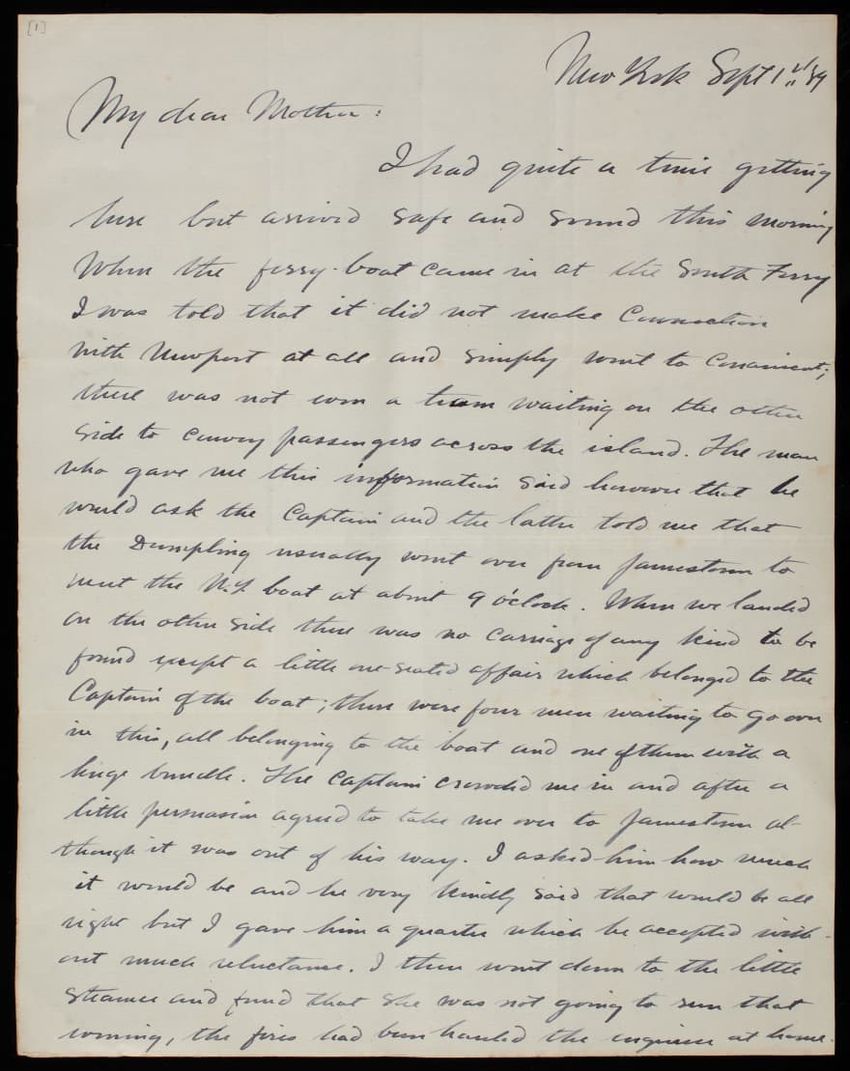 [1]
New York Sept 1st/89
My dear Mother:
I had quite a time getting
here but arrived safe and sound this morning
When the ferry-boat came in at the South Ferry
I was told that it did not make Connection
with Newport at all and simply went to Conanicut;
there was not even a team waiting on the other
side to convey passengers across the island. The man
who gave me this information said however that he
would ask the Captain and the latter told me that
the Dumpling usually went over from Jamestown to
meet the N.Y. boat at about 9 o'clock. When we landed
on the other side there was no carriage of any kind to be
found except a little one-seated affair which belonged to the
Captain of the boat; there were four men waiting to go over
in this, all belonging to the boat and one of them with a
huge bundle. The Captain crowded me in and after a
little persuasion agreed to take me over to Jamestown al-
though it was out of his way. I asked him how much
it would be and he very kindly said that would be all
right but I gave him a quarter which he accepted with-
out much reluctance. I then went down to the little
steamer and found that she was not going to run that
evening, the fires had been hauled the engineer at home.